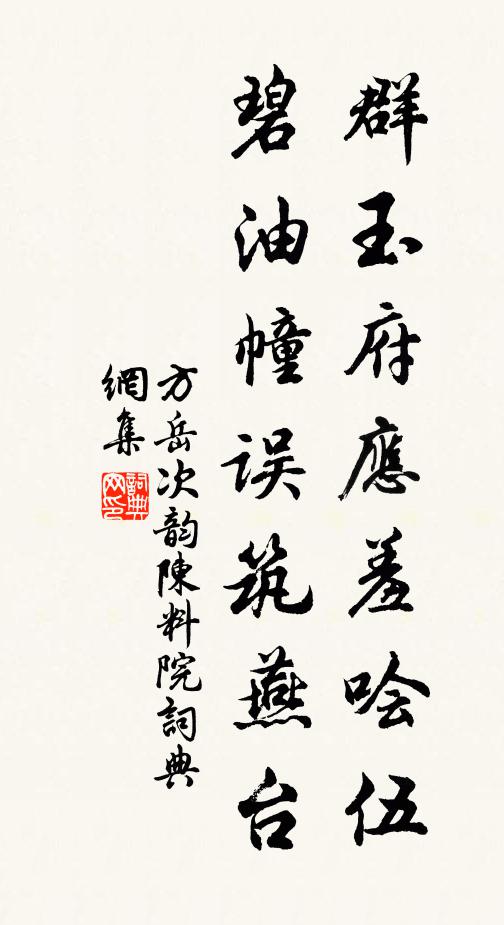 群玉府應羞哙伍
碧油幢误筑燕台
方岳次韵陳料院詞典
網集
詞典
网印